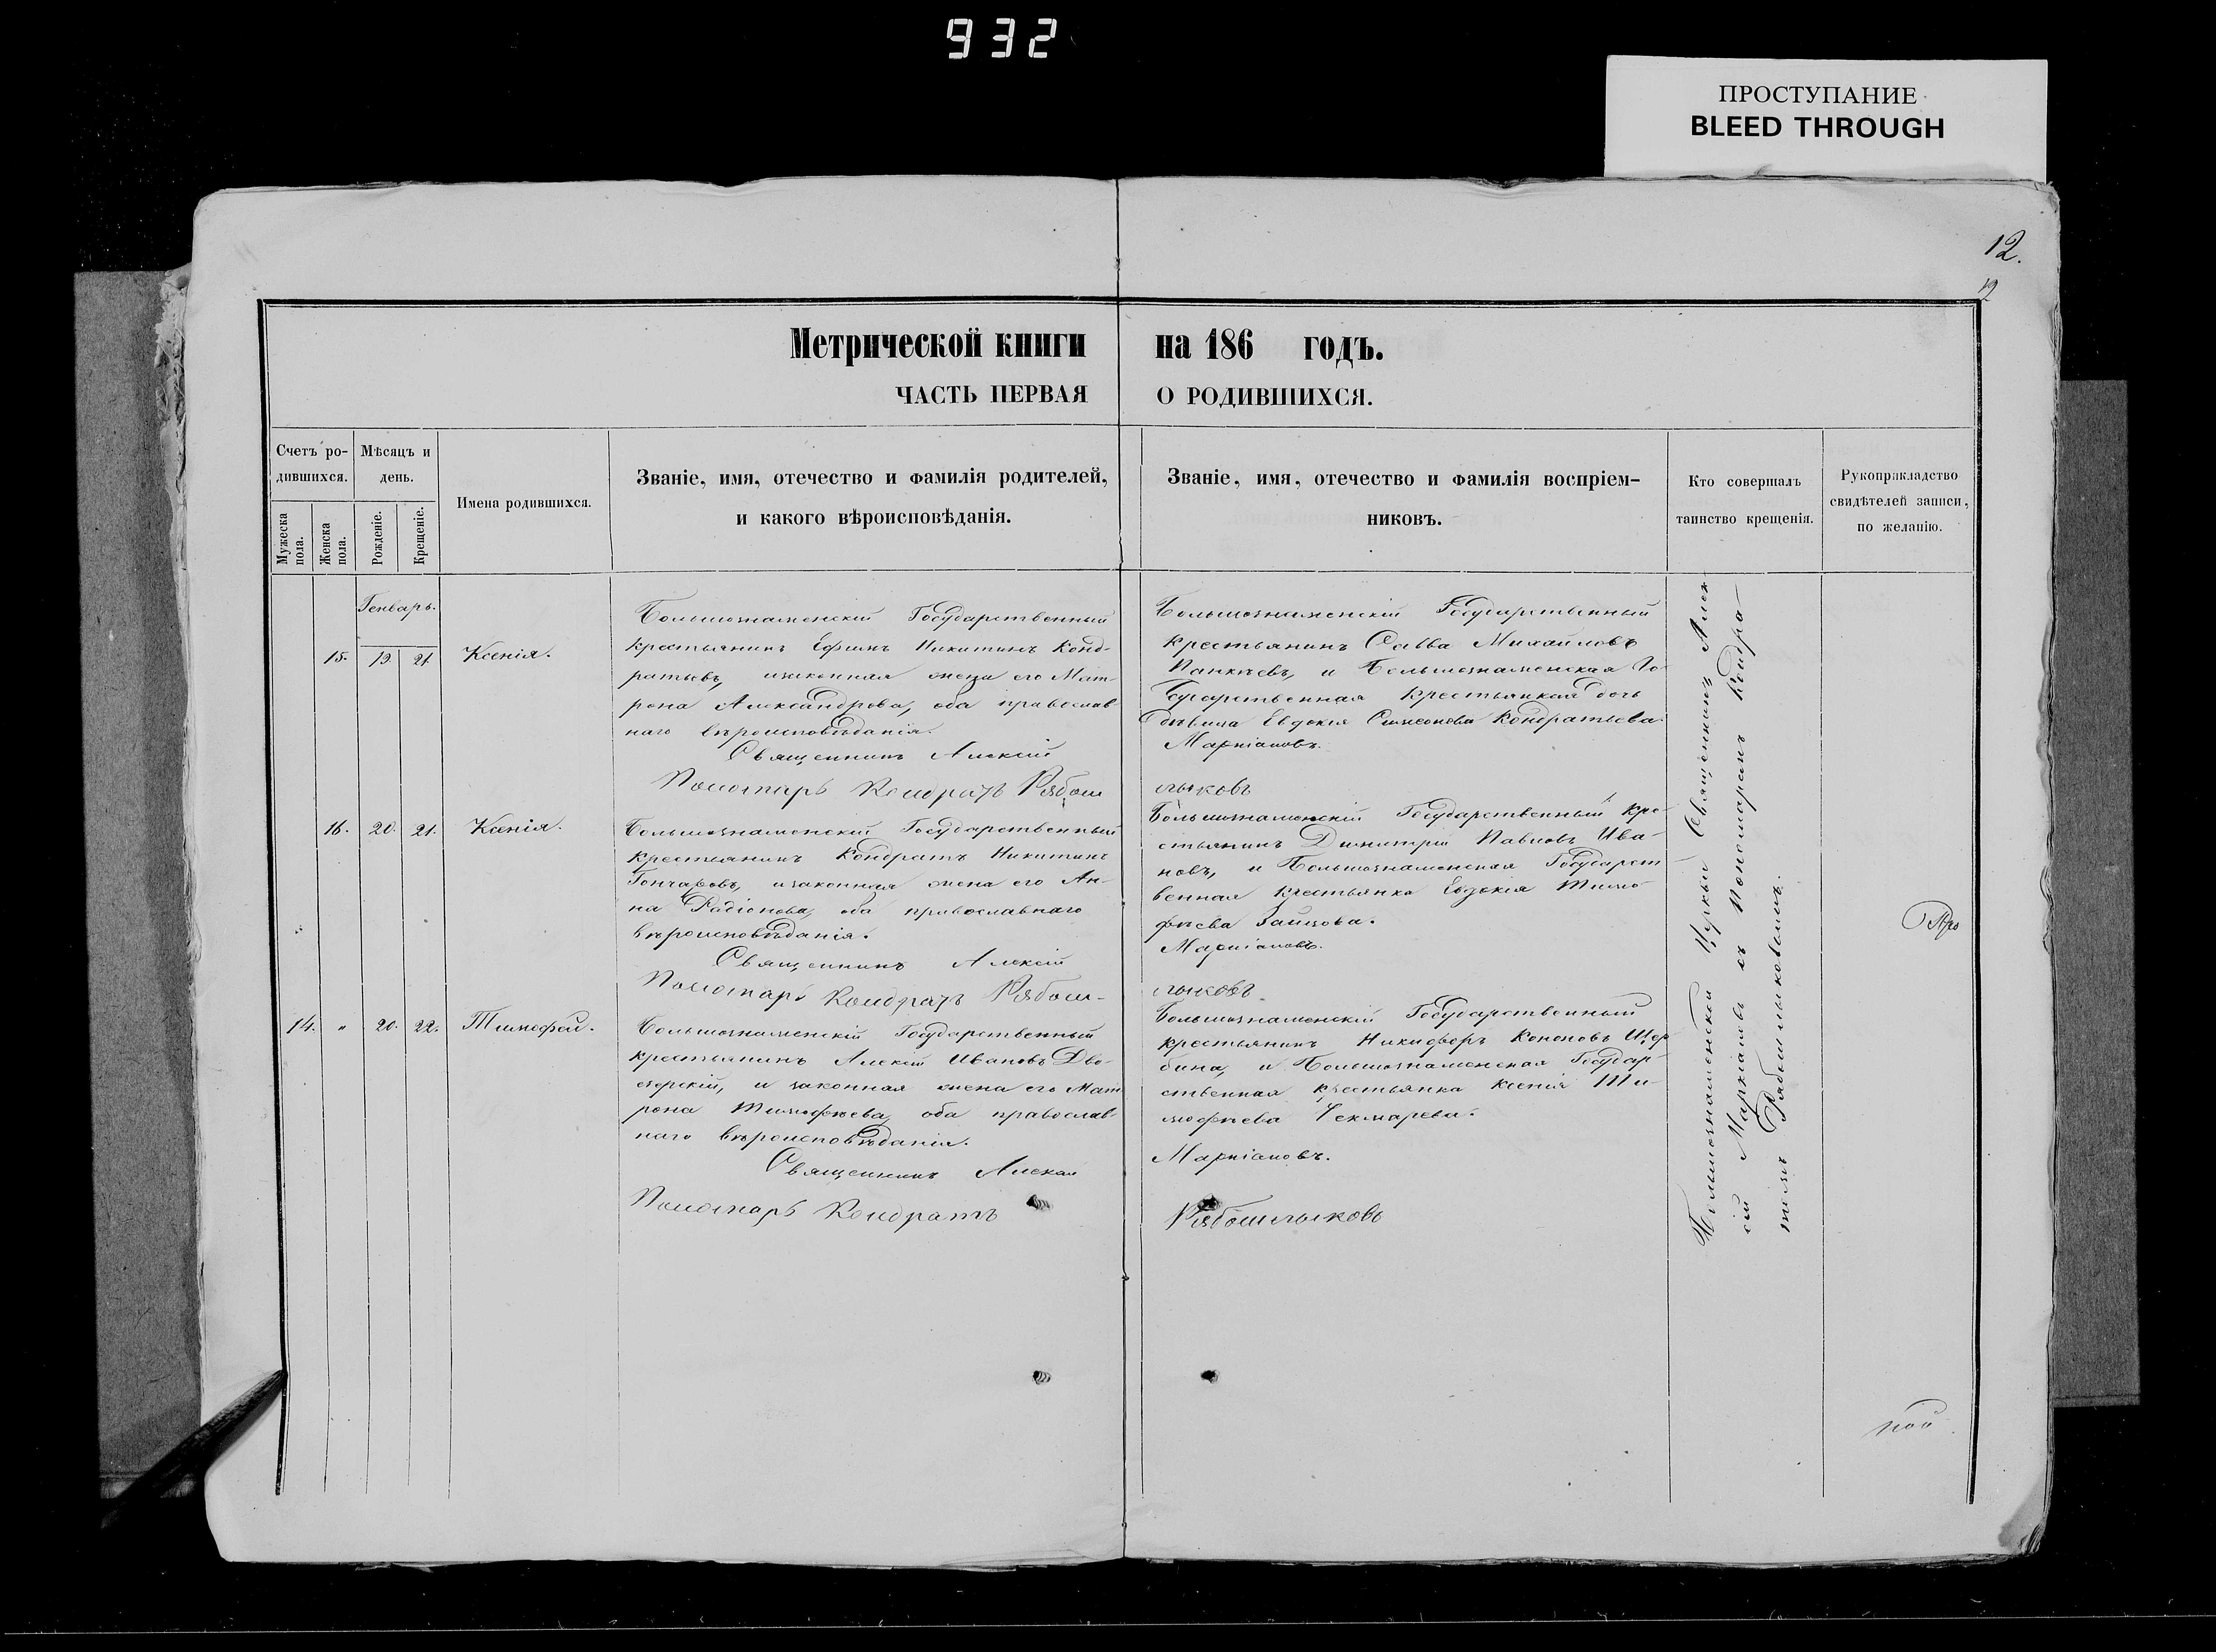 932
ПРОСТУПАНИЕ
BLEED THROUGH
12.
12
Метрической книги на 186 годъ.
ЧАСТЬ ПЕРВАЯ О РОДИВШИХСЯ.
Счетъ ро-
дившихся.
Мужеска пола.
Женска пола.
Мѣсяцъ и
день.
Рожденіе.
Крещеніе.
Имена родившихся.
Званіе, имя, отечество и фамилія родителей,
и какого вѣроисповѣданія.
Званіе, имя, отечество и фамилія воспріем-
никовъ.
Кто совершалъ
таинство крещенія.
Рукоприкладство
свидѣтелей записи,
по желанію.
Генварь.
15. 19. 21. Ксенія.
Большознаменскій Государственный
крестьянинъ Ефимъ Никитинъ Конд-
ратьевъ, изаконная жена его Мат-
рона Александрова, оба православ-
наго вѣроисповѣданія.
Священникъ Алексій
Пономарь Кондратъ Рябош
Большознаменскій Государственный
крестьянинъ Савва Михайловъ
Панкѣевъ, и Большознаменская Го-
сударственная крестьянкая дочь
дѣвица Евдокія Симеонова Кондратьева.
Маркіановъ.
лыковъ
16. 20. 21. Ксенія.
Большознаменскій Государственный
крестьянинъ Кондратъ Никитинъ
Гончаровъ, изаконная жена его Ан-
на Радіонова, оба православнаго
вѣроисповѣданія.
Священникъ Алексій
Пономарь Кондратъ Рябош-
Большознаменскій Государственный кре-
стьянинъ Димитрій Павловъ Ива-
новъ, и Большознаменская Государст
венная крестьянка Евдокія Тимо-
фѣева Зайцова.
Маркіановъ.
лыковъ
14. " 20. 22. Тимофей.
Большознаменскій Государственный
крестьянинъ Алексій Ивановъ Дво-
скорскій, и законная жена его Мат
рона Тимофѣева, оба православ-
наго вѣроисповѣданія.
Священникъ Алексій
Пономарь Кондратъ
Большознаменскій Государственный
крестьянинъ Никифоръ Кононовъ Щер
бина, и Большознаменская Государ-
ственная крестьянка Ксенія Ти-
мофѣева Чекмарева.
Маркіановъ.
Рябошлыковъ
Большознаменской Церкви Священникъ Алек-
сій Маркіановъ съ Пономаремъ Кондра-
томъ Рябошлыковымъ.